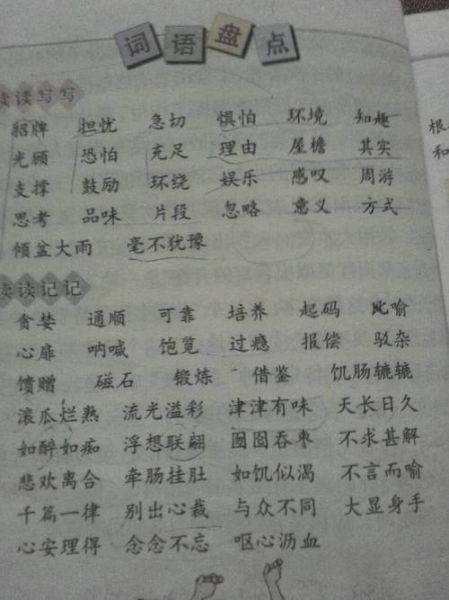 词语盘点
读读写写
招牌 担忧 急切 惧怕 环境 知趣
光顾 恐怕 充足 理由 屋檐 其实
支撑 鼓励 环绕 娱乐 感叹 周游
思考 品味 片段 忽略 意义 方式
倾盆大雨 毫不犹豫
读读记记
贪婪 通顺 可靠 培养 起码 比喻
心扉 呐喊 饱览 过瘾 报偿 驳杂
馈赠 磁石 锻炼 借鉴 饥肠辘辘
滚瓜烂熟 流光溢彩 津津有味 天长日久
如醉如痴 浮想联翩 囫囵吞枣 不求甚解
悲欢离合 牵肠挂肚 如饥似渴 不言而喻
千篇一律 别出心裁 与众不同 大显身手
心安理得 念念不忘 呕心沥血
根
和